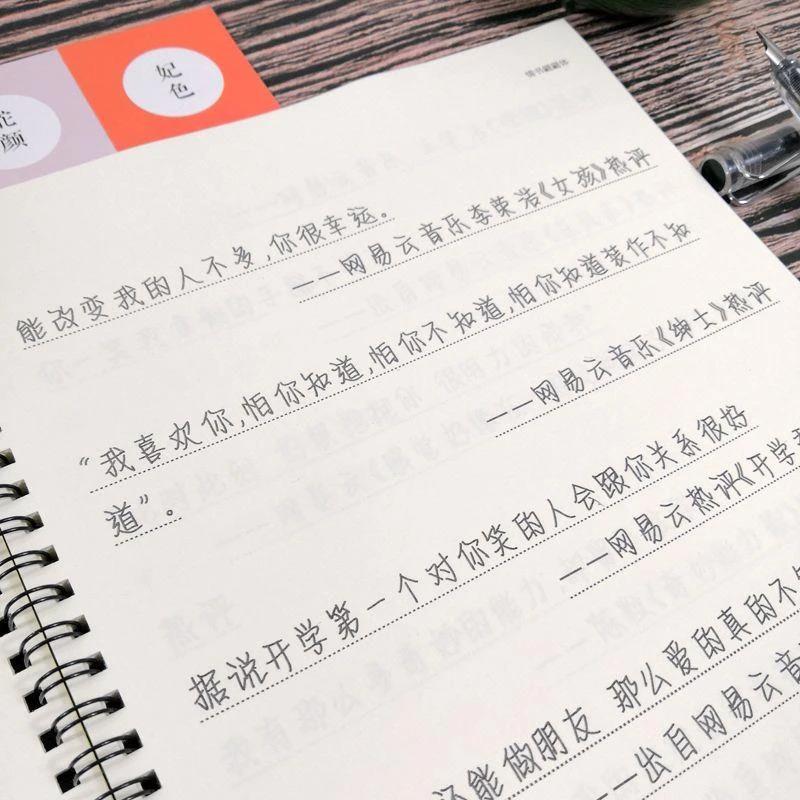 妃色
颜
能改变我的人不多,你很幸运。
——网易云音乐李荣浩《女孩》热评
“我喜欢你,怕你知道,怕你不知道,怕你知道装作不知
道”。
——网易云音乐《绅士》热评
据说开学第一个对你笑的人会跟你关系很好
——网易云热评《开学
还能做朋友 那么爱的真的不
——出自网易云音